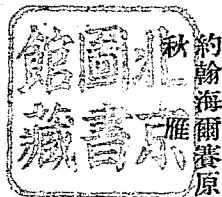 約翰海爾賽原
秋雁
北京
圖書
館藏